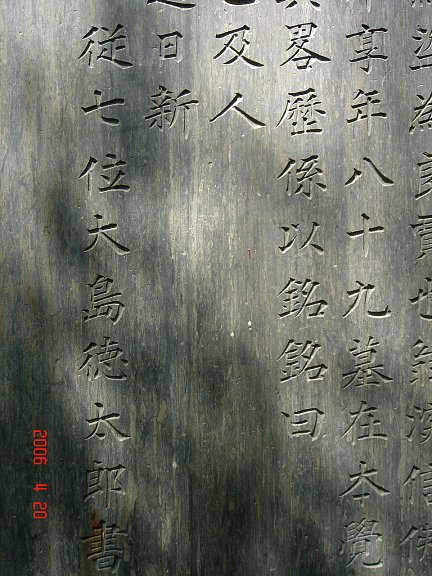 為良賈也翁深信佛
享年八十九墓在本覺
其畧歷係以銘銘曰
及人
日新
従七位大島徳太郎書
2006 4 20